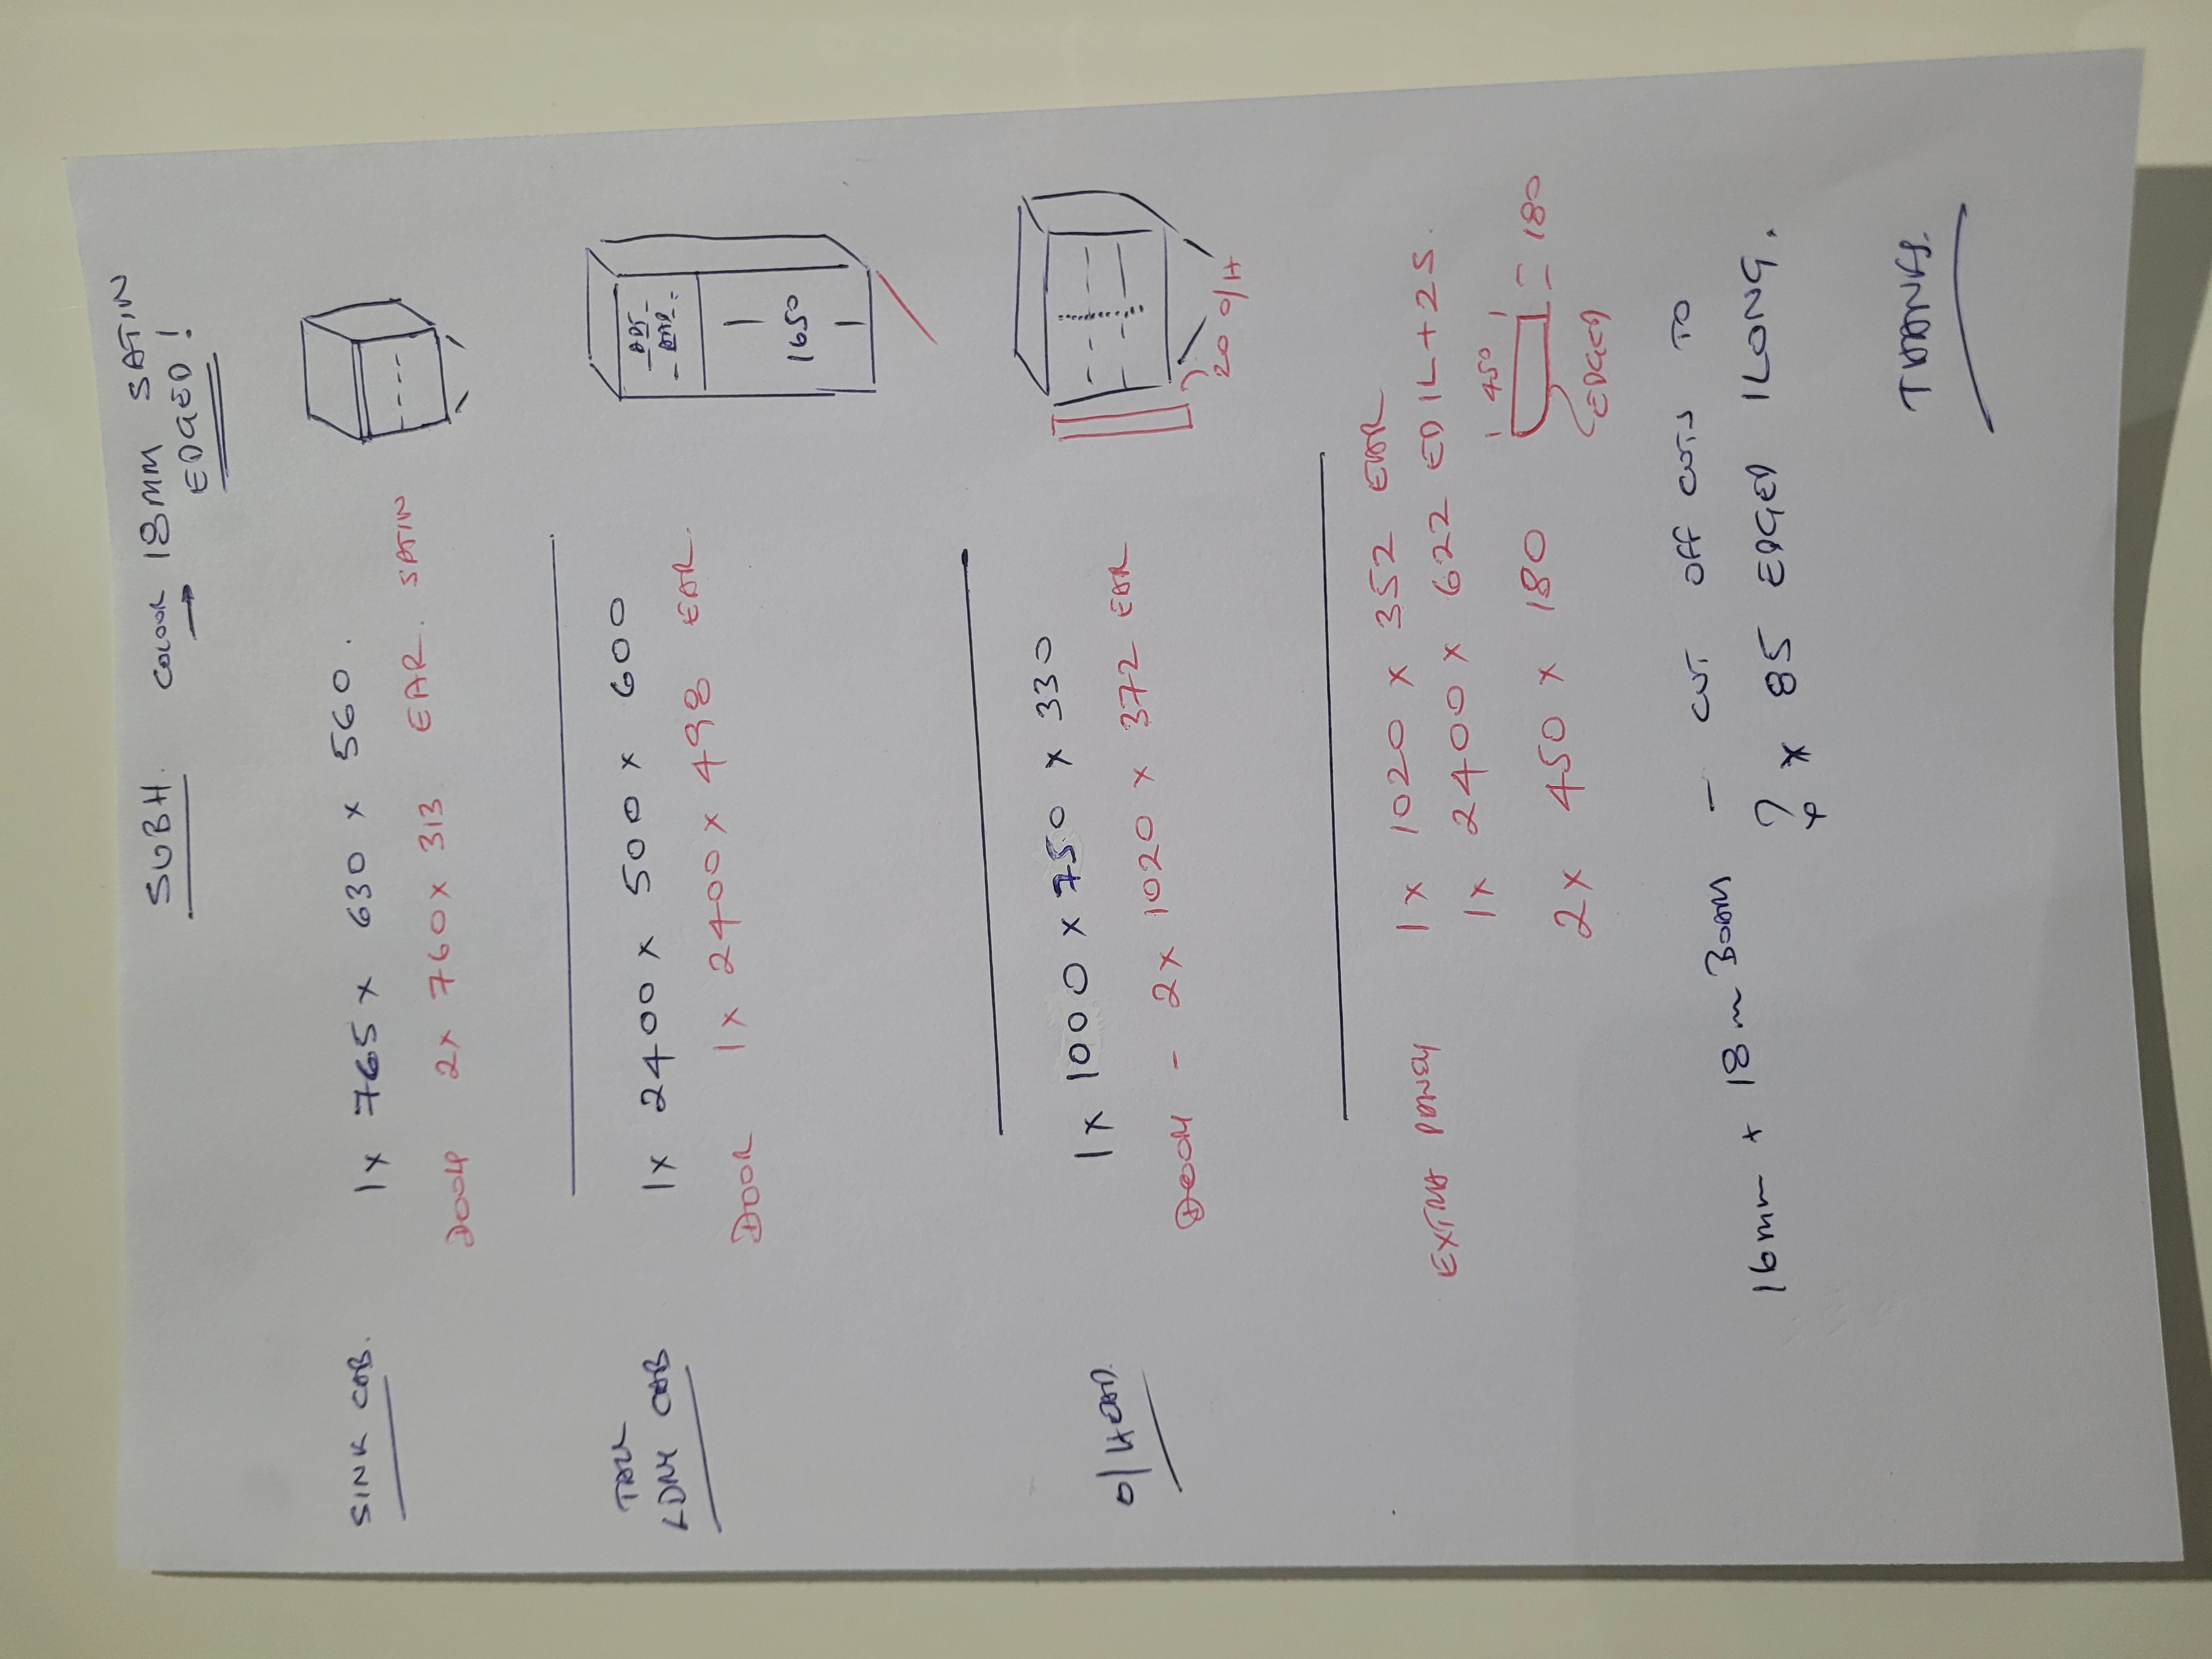 SUBH. COLOUR → 18MM SATIN
EDGED!
SINK CAB. 1x 765 x 630 x 560.
DOOR 2x 760 x 313 EAR. SATIN
TALL
LDRY CAB 1x 2400 x 500 x 600
DOOR 1x 2400 x 498 EAR.
ADJ
1650
O/HEAD. 1x 1000 x 750 x 330
DOOR - 2x 1020 x 372 EAR
20 O/H
EXTRA PANELS 1x 1020 x 352 EAR
1x 2400 x 622 ED 1L+2S.
2x 450 x 180
450
= 180
EDGED
16mm + 18mm BOARD - CUT OFF CUTS TO
? x 85 EDGED 1LONG.
THANKS.